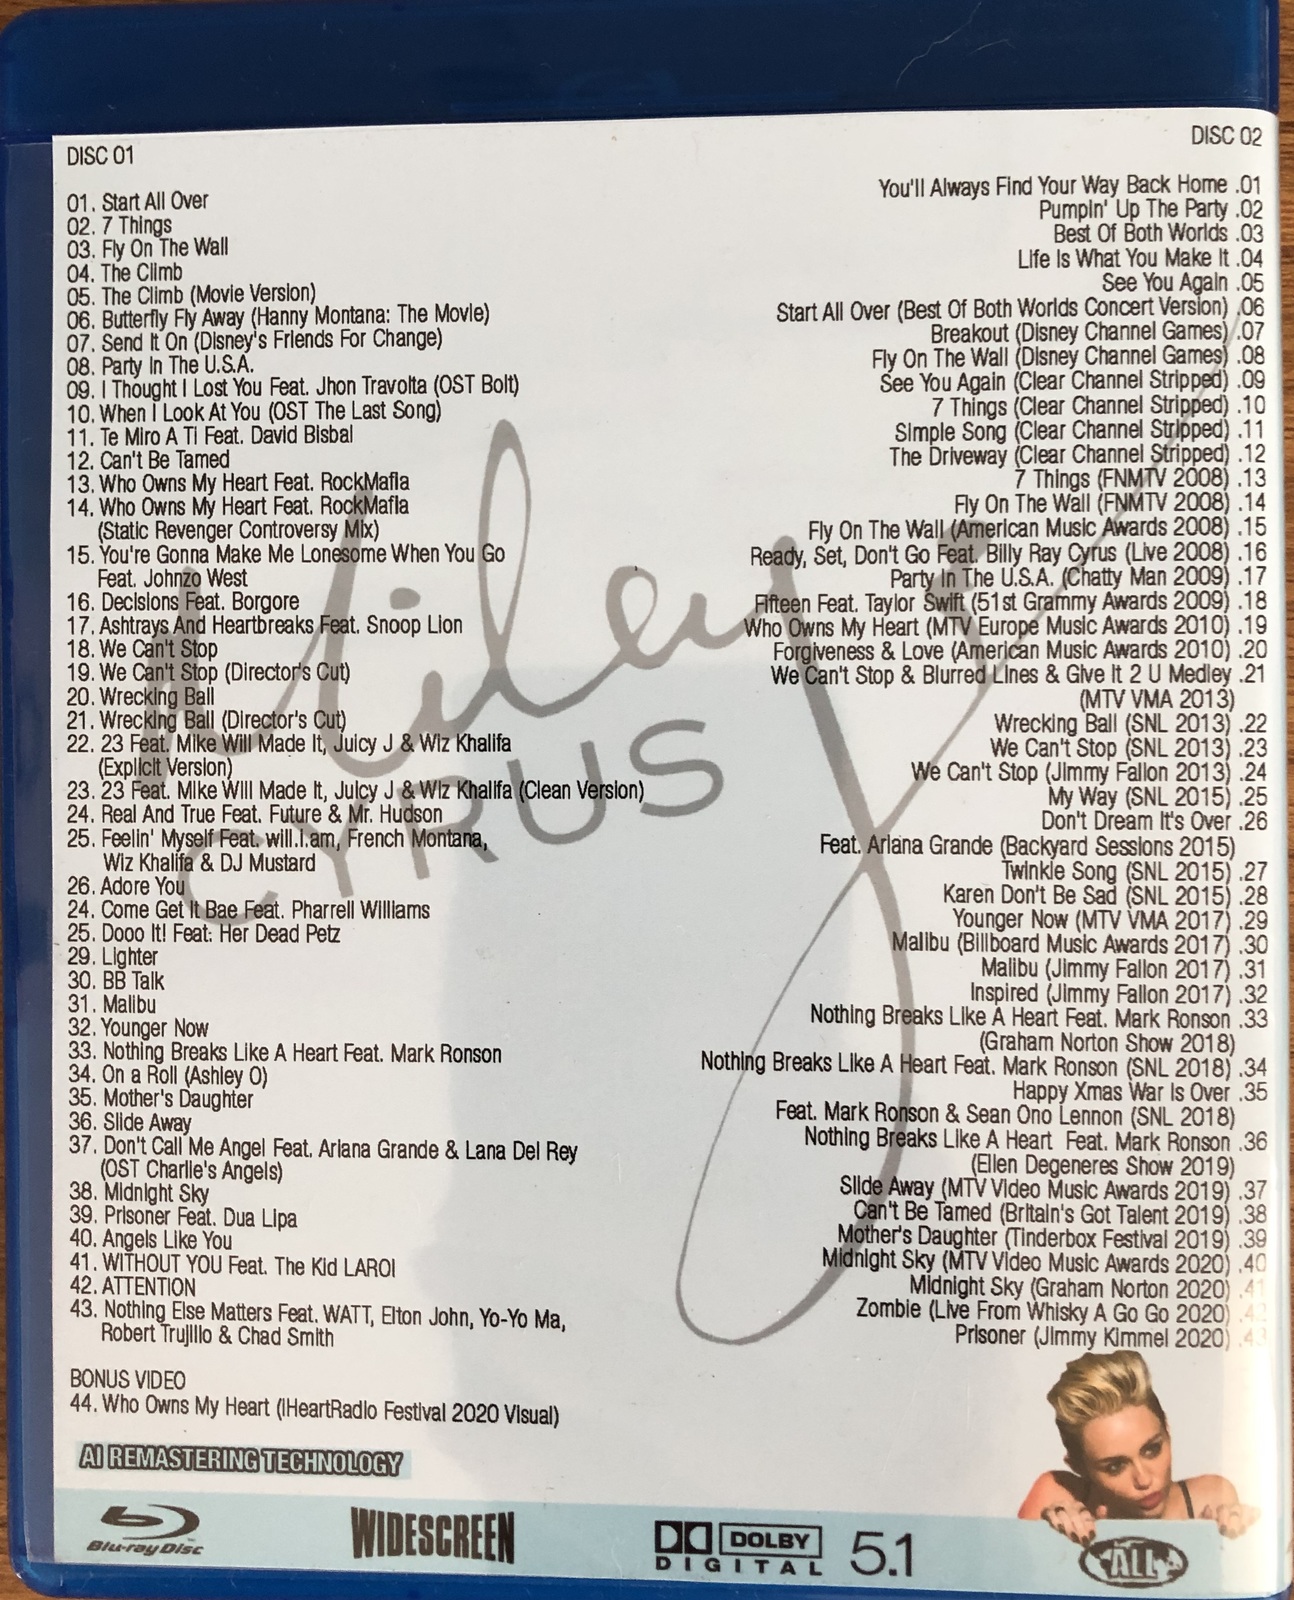 DISC 01
01. Start All Over
02. 7 Things
03. Fly On The Wall
04. The Climb
05. The Climb (Movie Version)
06. Butterfly Fly Away (Hanny Montana: The Movie)
07. Send It On (Disney's Friends For Change)
08. Party In The U.S.A.
09. I Thought I Lost You Feat. Jhon Travolta (OST Bolt)
10. When I Look At You (OST The Last Song)
11. Te Miro A Ti Feat. David Bisbal
12. Can't Be Tamed
13. Who Owns My Heart Feat. RockMafia
14. Who Owns My Heart Feat. RockMafia
(Static Revenger Controversy Mix)
15. You're Gonna Make Me Lonesome When You Go
Feat. Johnzo West
16. Decisions Feat. Borgore
17. Ashtrays And Heartbreaks Feat. Snoop Lion
18. We Can't Stop
19. We Can't Stop (Director's Cut)
20. Wrecking Ball
21. Wrecking Ball (Director's Cut)
22. 23 Feat. Mike Will Made It, Juicy J & Wiz Khalifa
(Explicit Version)
23. 23 Feat. Mike Will Made It, Juicy J & Wiz Khalifa (Clean Version)
24. Real And True Feat. Future & Mr. Hudson
25. Feelin' Myself Feat. will.i.am, French Montana,
Wiz Khalifa & DJ Mustard
26. Adore You
24. Come Get It Bae Feat. Pharrell Williams
25. Dooo It! Feat: Her Dead Petz
29. Lighter
30. BB Talk
31. Malibu
32. Younger Now
33. Nothing Breaks Like A Heart Feat. Mark Ronson
34. On a Roll (Ashley O)
35. Mother's Daughter
36. Slide Away
37. Don't Call Me Angel Feat. Ariana Grande & Lana Del Rey
(OST Charlie's Angels)
38. Midnight Sky
39. Prisoner Feat. Dua Lipa
40. Angels Like You
41. WITHOUT YOU Feat. The Kid LAROI
42. ATTENTION
43. Nothing Else Matters Feat. WATT, Elton John, Yo-Yo Ma,
Robert Trujillo & Chad Smith
BONUS VIDEO
44. Who Owns My Heart (iHeartRadio Festival 2020 Visual)
AI REMASTERING TECHNOLOGY
DISC 02
You'll Always Find Your Way Back Home .01
Pumpin' Up The Party .02
Best Of Both Worlds .03
Life Is What You Make It .04
See You Again .05
Start All Over (Best Of Both Worlds Concert Version) .06
Breakout (Disney Channel Games) .07
Fly On The Wall (Disney Channel Games) .08
See You Again (Clear Channel Stripped) .09
7 Things (Clear Channel Stripped) .10
Simple Song (Clear Channel Stripped) .11
The Driveway (Clear Channel Stripped) .12
7 Things (FNMTV 2008) .13
Fly On The Wall (FNMTV 2008) .14
Fly On The Wall (American Music Awards 2008) .15
Ready, Set, Don't Go Feat. Billy Ray Cyrus (Live 2008) .16
Party In The U.S.A. (Chatty Man 2009) .17
Fifteen Feat. Taylor Swift (51st Grammy Awards 2009) .18
Who Owns My Heart (MTV Europe Music Awards 2010) .19
Forgiveness & Love (American Music Awards 2010) .20
We Can't Stop & Blurred Lines & Give It 2 U Medley .21
(MTV VMA 2013)
Wrecking Ball (SNL 2013) .22
We Can't Stop (SNL 2013) .23
We Can't Stop (Jimmy Fallon 2013) .24
My Way (SNL 2015) .25
Don't Dream It's Over .26
Feat. Ariana Grande (Backyard Sessions 2015)
Twinkle Song (SNL 2015) .27
Karen Don't Be Sad (SNL 2015) .28
Younger Now (MTV VMA 2017) .29
Malibu (Billboard Music Awards 2017) .30
Malibu (Jimmy Fallon 2017) .31
Inspired (Jimmy Fallon 2017) .32
Nothing Breaks Like A Heart Feat. Mark Ronson .33
(Graham Norton Show 2018)
Nothing Breaks Like A Heart Feat. Mark Ronson (SNL 2018) .34
Happy Xmas War Is Over .35
Feat. Mark Ronson & Sean Ono Lennon (SNL 2018)
Nothing Breaks Like A Heart Feat. Mark Ronson .36
(Ellen Degeneres Show 2019)
Slide Away (MTV Video Music Awards 2019) .37
Can't Be Tamed (Britain's Got Talent 2019) .38
Mother's Daughter (Tinderbox Festival 2019) .39
Midnight Sky (MTV Video Music Awards 2020) .40
Midnight Sky (Graham Norton 2020) .41
Zombie (Live From Whisky A Go Go 2020) .42
Prisoner (Jimmy Kimmel 2020) .43
Miley
CYRUS
Blu-ray Disc
WIDESCREEN
DOLBY
DIGITAL
5.1
ALL